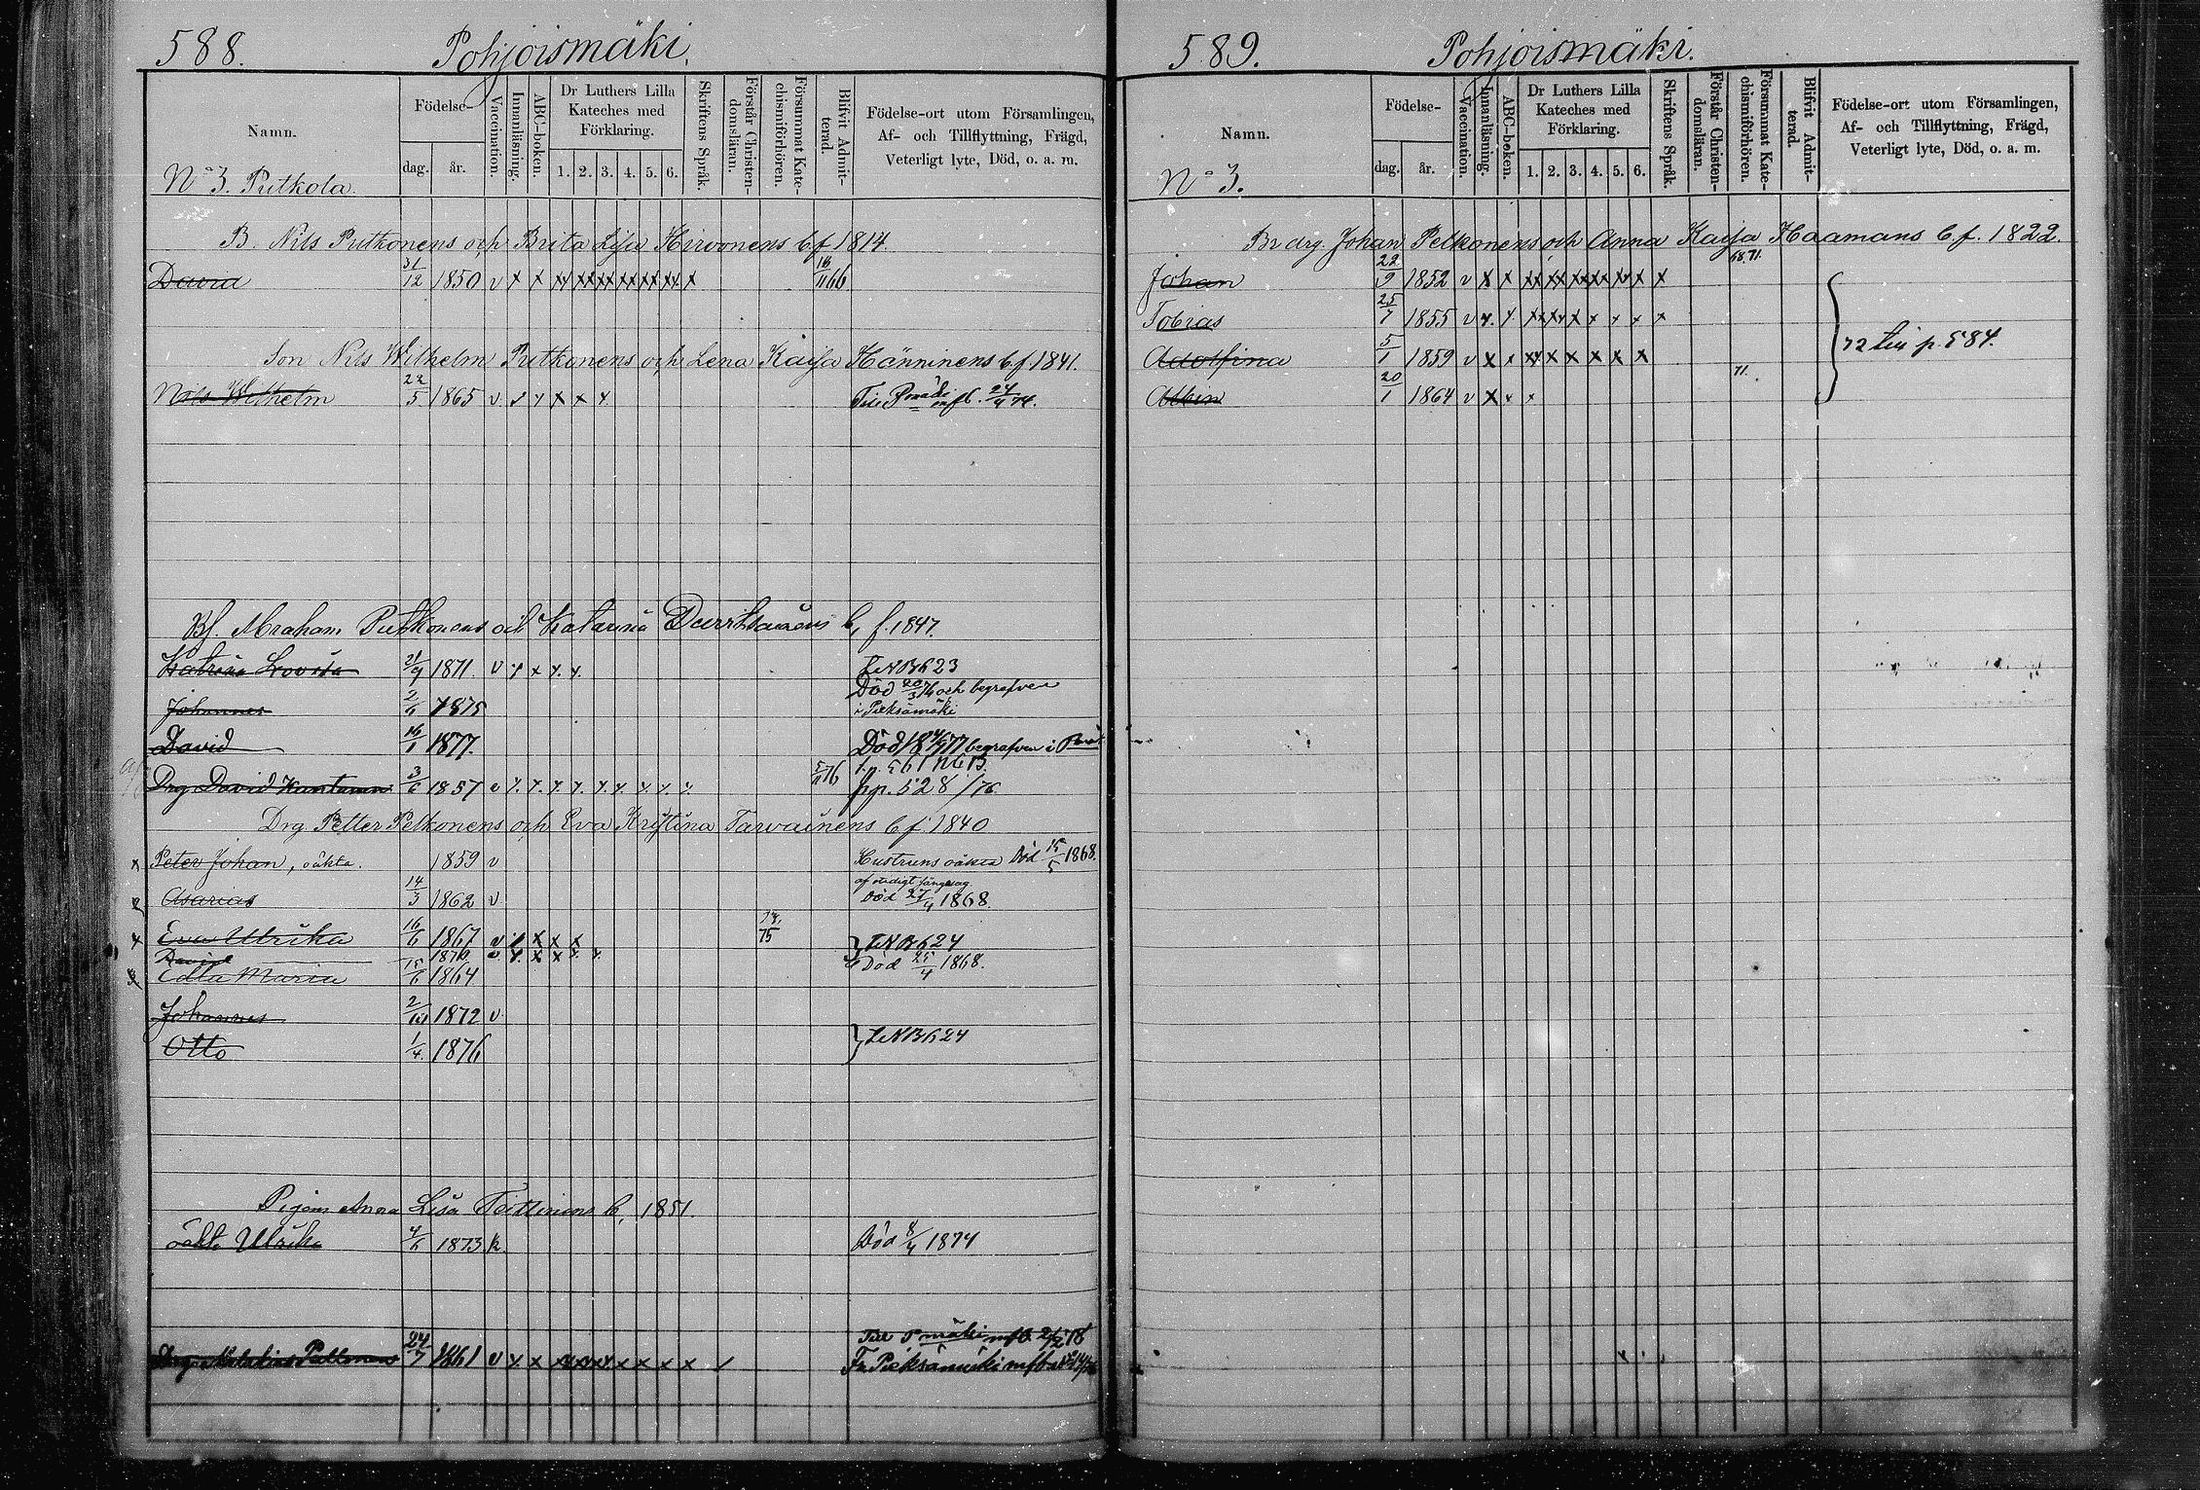 588. Pohjoismäki.
Namn.
Födelse-
dag. år.
Vaccination.
Innanläsning.
ABC-boken.
Dr Luthers Lilla
Kateches med
Förklaring.
1. 2. 3. 4. 5. 6.
Skriftens Språk.
Förstår Christen-
domsläran.
Försummat Kate-
chismiförhören.
Blifvit Admit-
terad.
Födelse-ort utom Församlingen,
Af- och Tillflyttning, Frägd,
Veterligt lyte, Död, o. a. m.
No 3. Putkola.
B. Nils Putkonens och Brita Lisa Hirvonens b f 1814.
David 31/12 1850 v x x xx xx xx xx xx xx x 16/11 66
Son Nils Wilhelm Putkonens och Lena Kaisa Hänninens b f 1841.
Nils Wilhelm 22/5 1865 v x x x x x Till Pmäki mfb. 24/4 74.
Bf. Abraham Putkonens och Katarina b, f. 1847.
Katrina Lovisa 21/9 1871. v x x x x L N B 623
Johannes 2/6 1875 Död 20/3 76 och begrafven
i Pieksämäki
David 16/1 1877. Död begrafven i
Drg David 3/6 1857 v x x x x x x x x x 76 pp. 528/76.
Drg Petter Pelkonens och Eva Kristina Tarvainens b f 1840
Peter Johan, oäkta. 1859 v Hustruns oäkta Död 15/5 1868.
Asarias 14/3 1862 v Död 27/4 1868.
Eva Ulrika 16/6 1867 v x x x x 75 L N B 624
David 1870 v x x x x x
Edla Maria 15/6 1864 Död 25/4 1868.
Johannes 2/10 1872 v
Otto 1/4. 1876 L N B 624
Pigan Anna Lisa b, 1851.
oäkt. Ulrika 4/6 1873 k. Död 8/4 1874
Till Pmäki mfb. 78
24/7 1861 v x x xx xx xx x x x x / Fr Pieksämäki mfb
589. Pohjoismäki.
Namn.
Födelse-
dag. år.
Vaccination.
Innanläsning.
ABC-boken.
Dr Luthers Lilla
Kateches med
Förklaring.
1. 2. 3. 4. 5. 6.
Skriftens Språk.
Förstår Christen-
domsläran.
Försummat Kate-
chismiförhören.
Blifvit Admit-
terad.
Födelse-ort utom Församlingen,
Af- och Tillflyttning, Frägd,
Veterligt lyte, Död, o. a. m.
No 3.
Br drg. Johan Pelkonens och Anna Kaisa Haamans b. f. 1822.
Johan 22/9 1852 v x x xx xx xx xx xx x x 68. 71.
Tobias 25/7 1855 v x. x. xx xx x x x x x
Adolfina 5/1 1859 v x x xx x x x x x 72 till p. 584.
Albin 20/1 1864 v x x x 71.